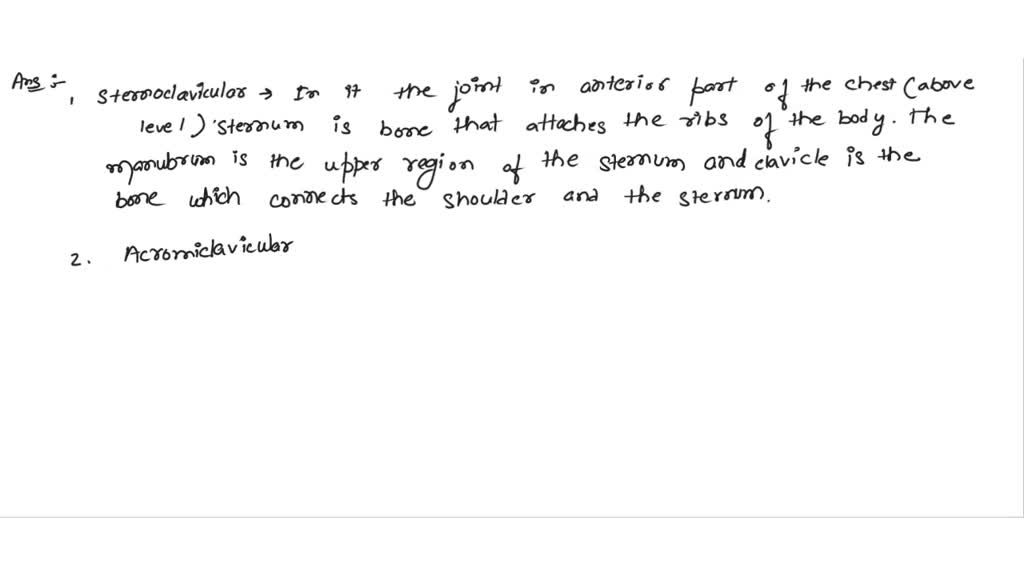 Ans :-
1 Sternoclavicular → In it the joint in anterior part of the chest (above
level) 'sternum is bone that attaches the ribs of the body. The
manubrum is the upper region of the sternum and clavicle is the
bone which connects the shoulder and the sternum.
2. Acromiclavicular